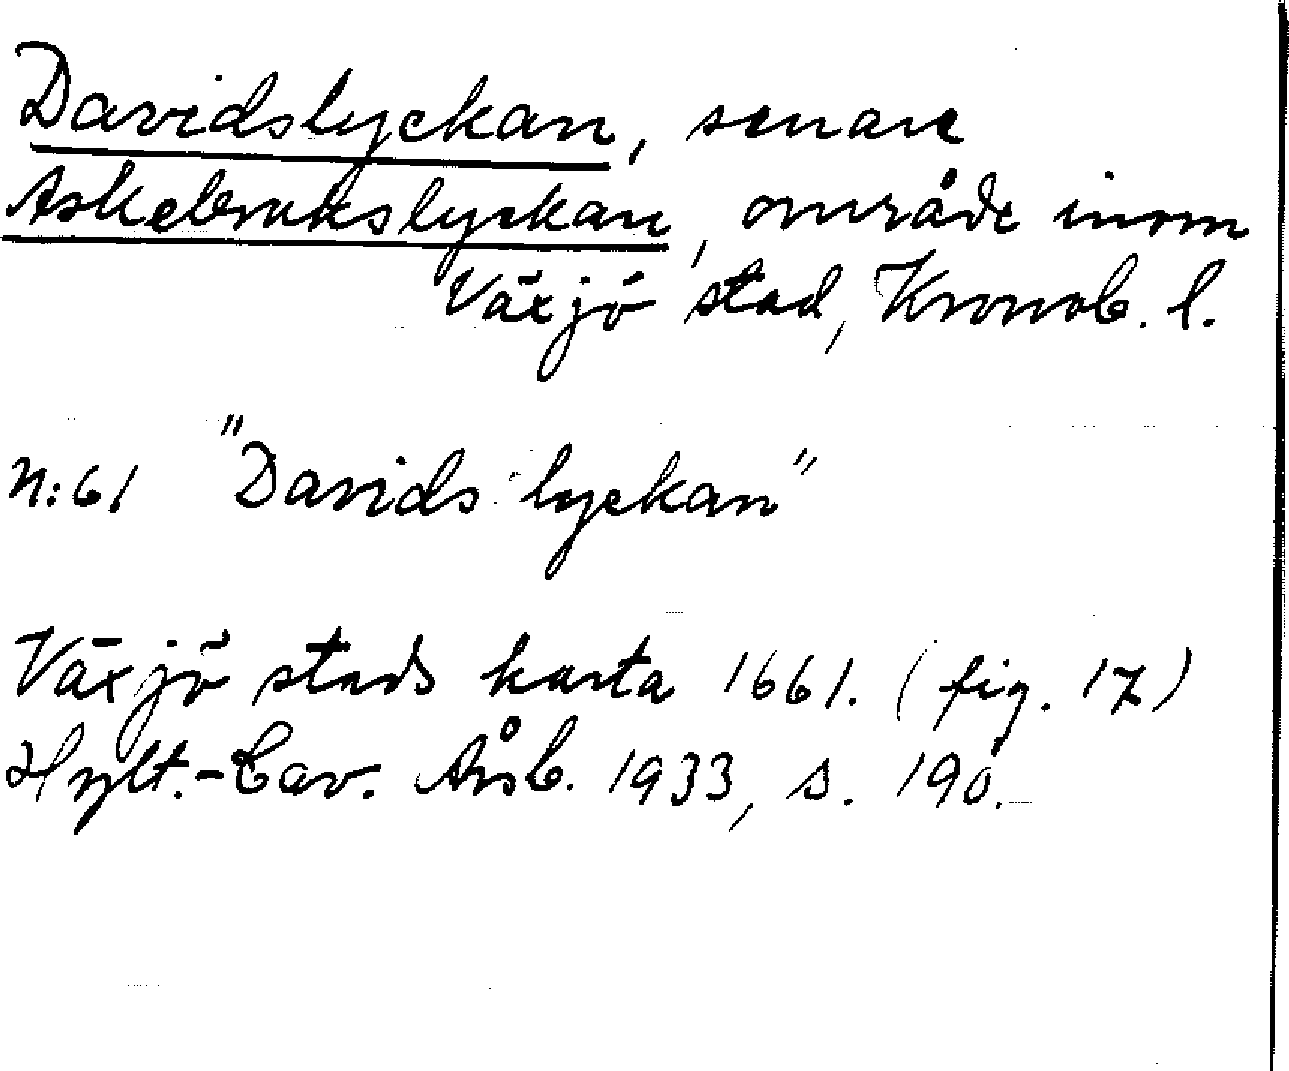 Davidslyckan, senare
Askebrukslyckan, område inom
Växjö stad, Kronob. l.
N:61 "Davids lyckan"
Växjö stads karta 1661. (fig. 17)
Hylt.-Cav. Årsb. 1933, s. 190.